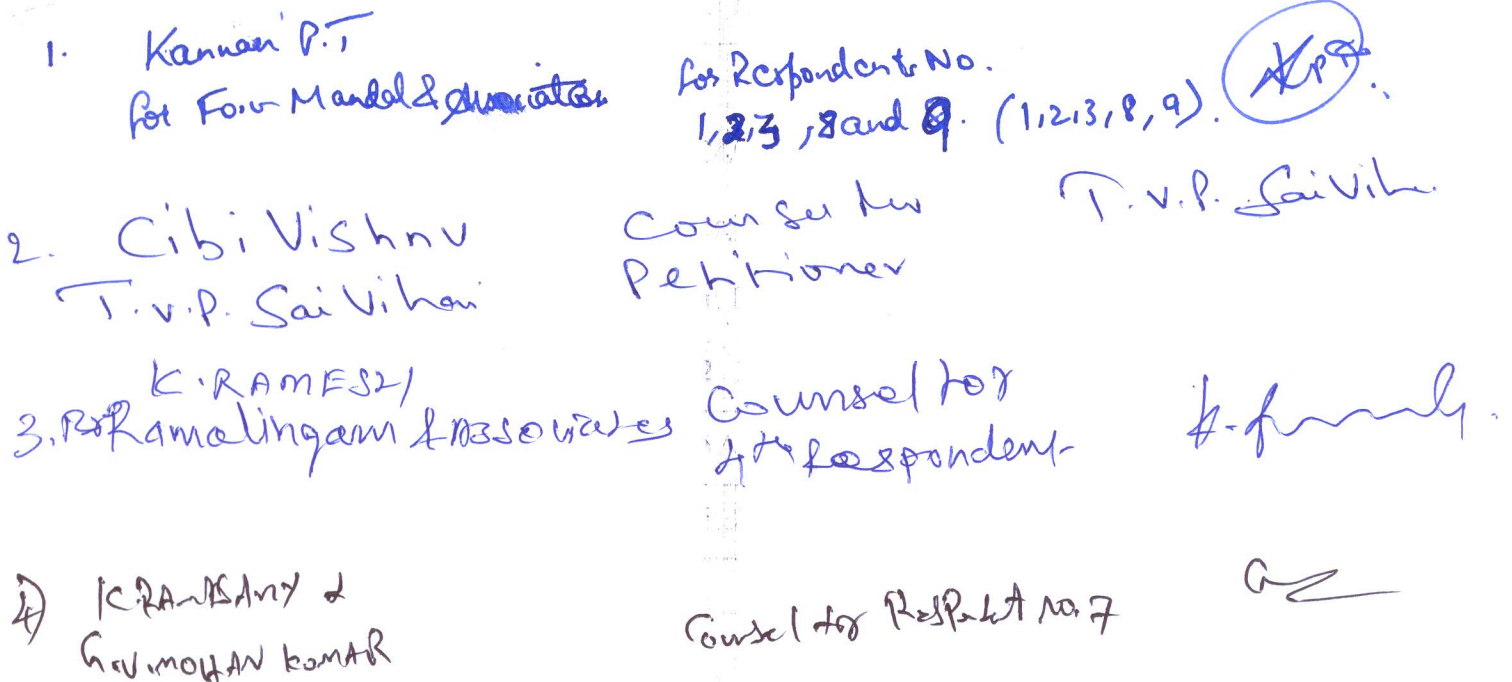 1. Kannan P.T
for Fox Mandal & Associates
for Respondents No.
1,2,3 ,8 and 9. (1,2,3,8,9).
2. Cibi Vishnu
T.V.P. Sai Vihari
Counsel for
Petitioner
T.V.P. Sai Vih
K.RAMESH
3. Ramalingam & Associates
Counsel for
4th Respondent
4) K RAMASAMY &
G.V. MOHAN KUMAR
Counsel for Respdt no. 7